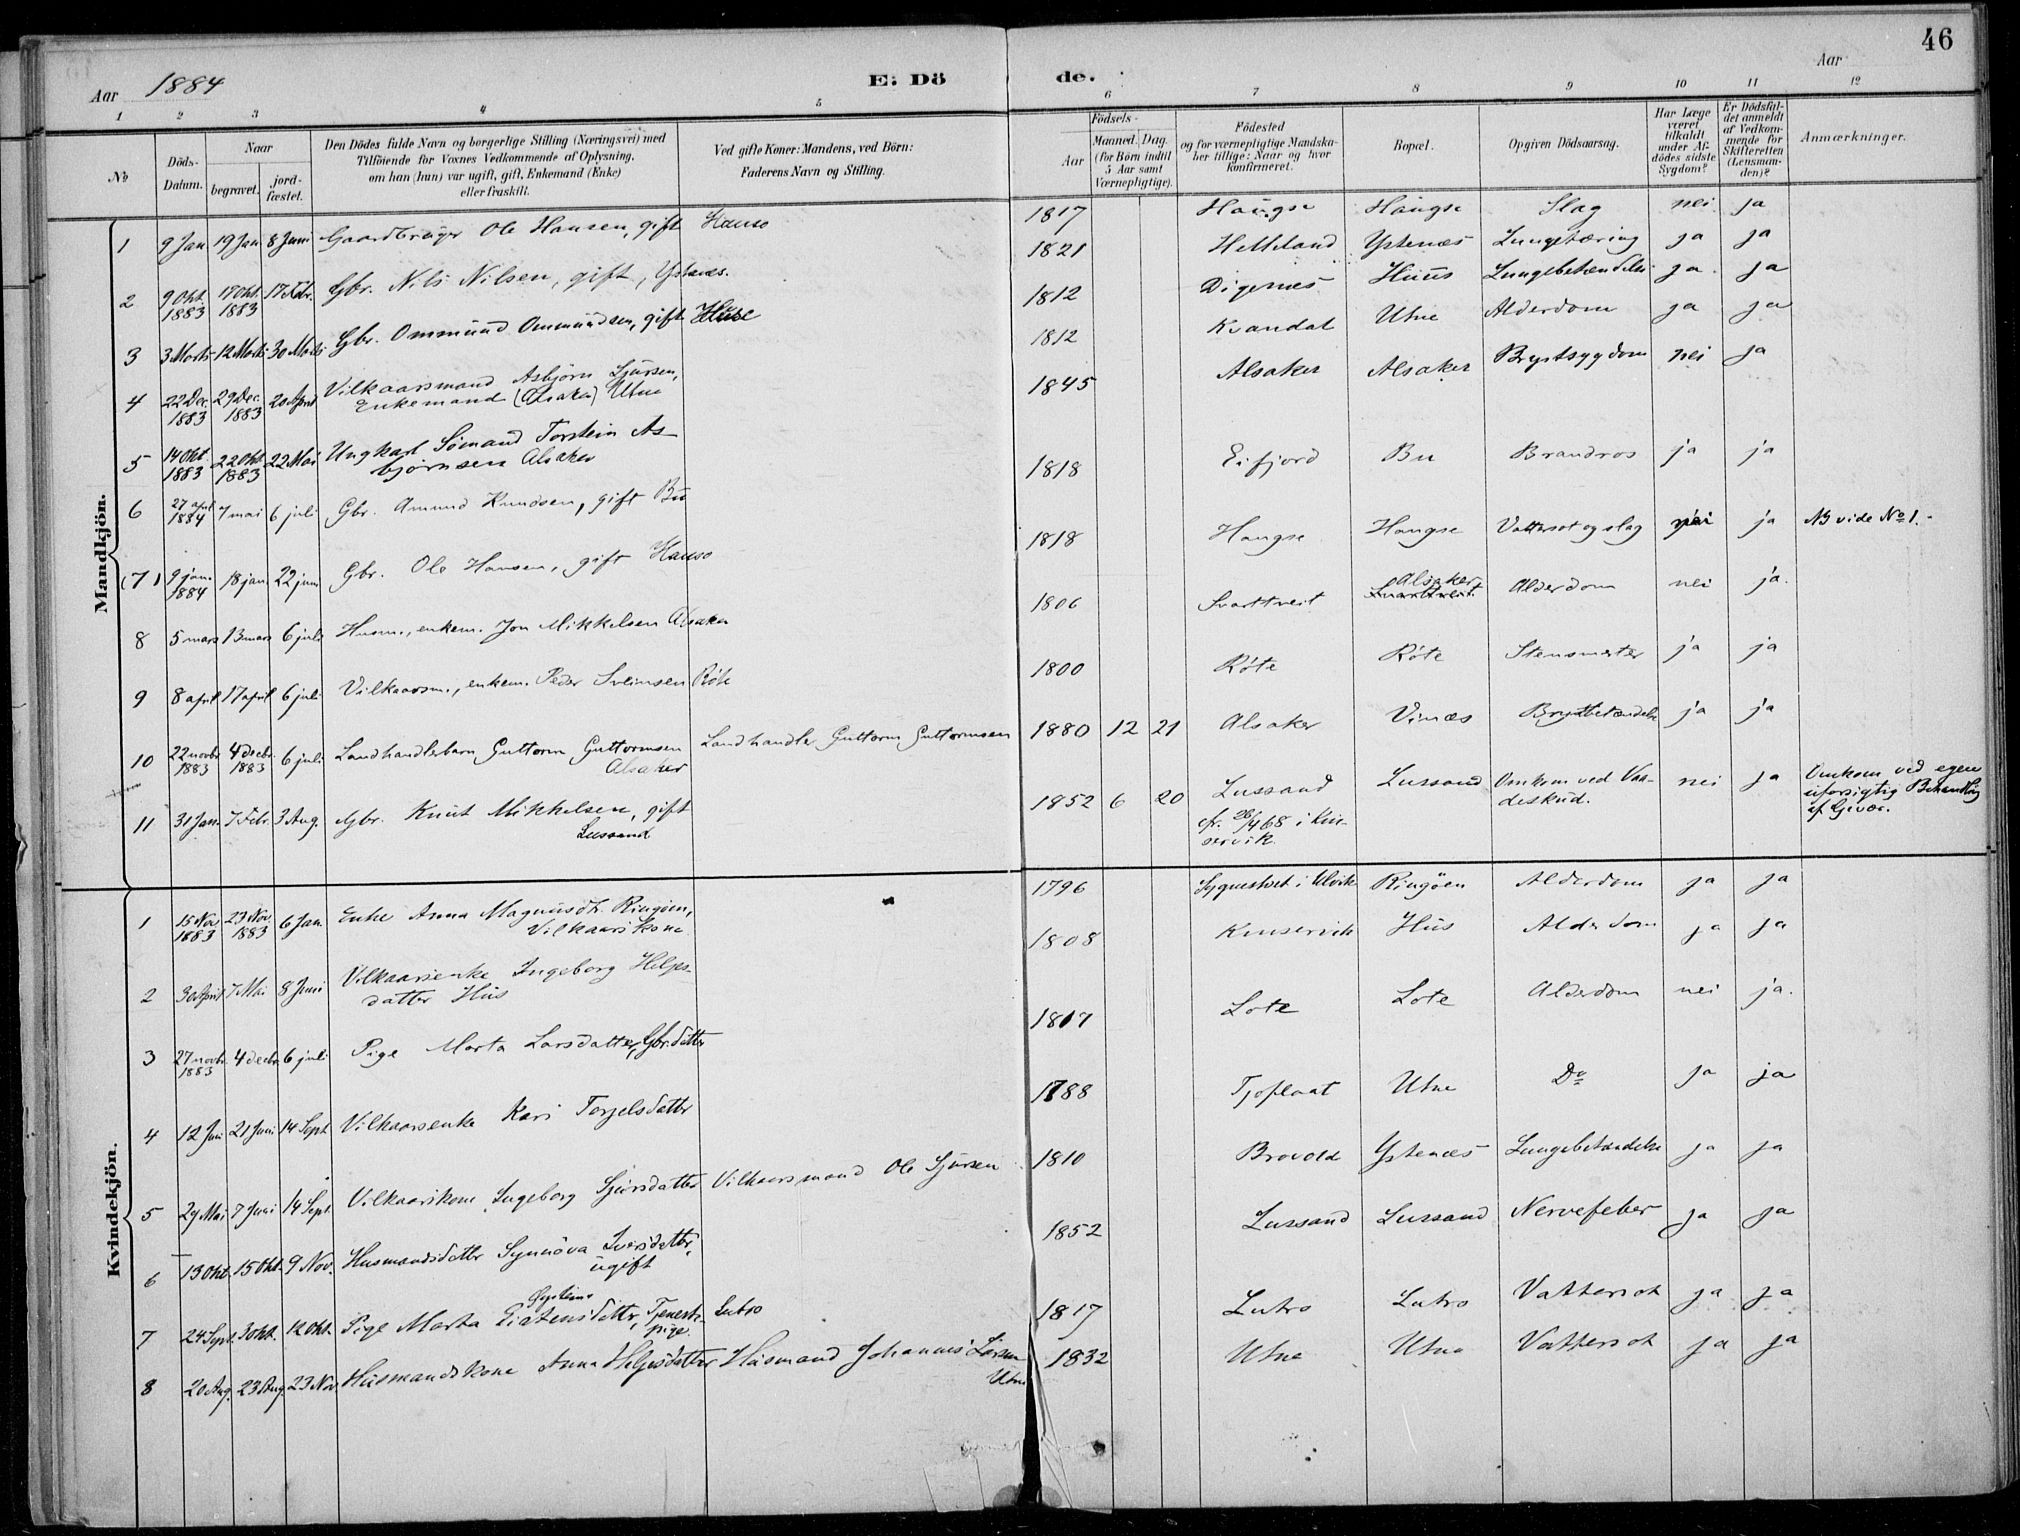 46
Aar 1884
E. Dö
de.
Aar
1 2 3 4 5 6 7 8 9 10 11 12
No
Döds-Datum.
Naar
begravet.
jord-fæstet.
Den Dödes fulde Navn og borgerlige Stilling (Næringsvei) med
Tilföiende for Voxnes Vedkommende af Oplysning,
om han (hun) var ugift, gift, Enkemand (Enke)
eller fraskilt.
Ved gifte Koner: Mandens, ved Börn:
Faderens Navn og Stilling.
Födsels-
Aar
Maaned. Dag.
(for Börn indtil
5 Aar samt
Værnepligtige).
Födested
og for værnepligtige Mandska-
ber tillige: Naar og hvor
konfirmeret.
Bopæl.
Opgiven Dödsaarsag.
Har Læge
været
tilkaldt
under Af-
dödes sidste
Sygdom?
Er Dödsfal-
det anmeldt
af Vedkom-
mende for
Skifteretten
(Lensman-
den)?
Anmærkninger.
Mandkjön.
1 9 Jan 19 Jan 8 Juni Gaardbruger Ole Hansen, gift Hauso 1817 Haugse Haugse Slag nei ja
2 9 Okt. 1883 17 Okt. 1883 17 Febr. Gbr. Nils Nilsen, gift, Ystenæs. 1821 Helleland Ystenæs Lungetæring ja ja
3 3 Marts 12 Marts 30 Marts Gbr. Ommund Ommundsen, gift Huse 1812 Digenæs Huus Lungebetændelse ja ja
4 22 Dec. 1883 29 Dec. 1883 20 April Vilkaarsmand Asbjørn Sjursen,
Enkemand (Alsaker) Utne 1812 Kvandal Utne Alderdom ja ja
5 14 Okt. 1883 22 Okt 1883 22 Mai Ungkarl Sömand Torstein As-
bjørnsen Alsaker 1845 Alsaker Alsaker Brystsygdom nei ja
6 27 april 1884 7 mai 6 juli Gbr. Amund Knudsen, gift Bu 1818 Eifjord Bu Brandros ja ja
(7) 9 jan. 1884 18 jan. 22 juni Gbr. Ole Hansen, gift Hauso 1818 Haugse Haugse Vattersot og slag nei ja NB vide No 1.
8 5 mars 13 mars 6 juli Husm., enkem. Jon Mikkelsen Alsaker 1806 Svartveit Alsaker Svartveit Alderdom nei ja.
9 8 april 17 april 6 juli Vilkaarsm., enkem. Peder Sveinsen Røte 1800 Røte Røte Stensmerter ja ja
10 22 novbr 1883 4 decbr. 1883 6 juli Landhandlerbarn Guttorm Guttormsen
Alsaker Landhandler Guttorm Guttormsen 1880 12 21 Alsaker Vinæs Brystbetændelse ja ja
11 31 Jan. 7 Febr. 3 Aug. Gbr. Knut Mikkelsen, gift
Lussand 1852 6 20 Lussand
cfr. 26/4 68 i Kin-
servik. Lussand Omkom ved Vaa-
deskud. nei ja Omkom ved egen
uforsigtig Behandling
af Gevær.
Kvindekjön.
1 15 Nov. 1883 23 Nov. 1883 6 Jan. Enke Anna Magnusdtr. Ringøen,
Vilkaarskone 1796 Sygnestvet i Ulvik Ringøen Alderdom ja ja
2 30 April 7 Mai 8 Juni Vilkaarsenke Ingeborg Helges-
datter Hus 1808 Kinservik Hus Alderdom ja ja
3 27 novbr. 1883 4 decbr 6 juli Pige Marta Larsdatter, Gbr.datter 1817 Lote Lote Alderdom nei ja.
4 12 Juni 21 Juni 14 Sept. Vilkaarsenke Kari Torjelsdatter 1788 Tjoflaat Utne Do ja ja
5 29 Mai 7 Juni 14 Sept. Vilkaarskone Ingeborg Sjursdatter Vilkaarsmand Ole Sjursen 1810 Brovold Ystenæs Lungebetændelse ja ja
6 13 Okt. 15 Okt. 9 Nov. Husmandsdatter Synnöva Iversdatter,
ugift 1852 Lussand Lussand Nervefeber ja ja
7 24 Sept. 3 Okt. 12 Okt. Pige Marta Eistensdatter, Tjeneste-
pige. Øysteins Lutro 1817 Lutro Lutro Vattersot ja ja
8 20 Aug. 23 Aug. 23 Nov. Husmandskone Anna Helgesdatter Husmand Johannes Larsen
Utne 1832 Utne Utne Vattersot ja ja